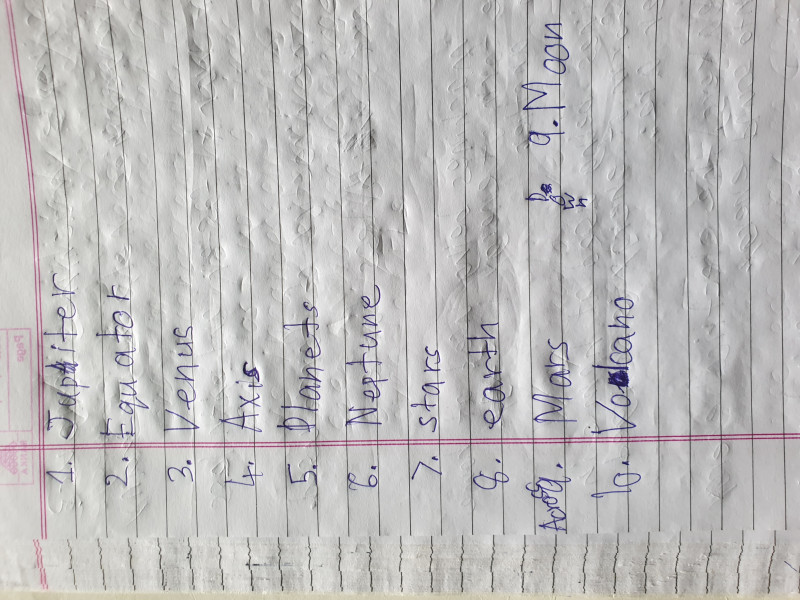 Page
1. Jupiter
2. Equator
3. Venus
4. Axis
5. Planets
6. Neptune
7. stars
8. earth
Across 9. Mars Down 9. Moon
10. Volcano